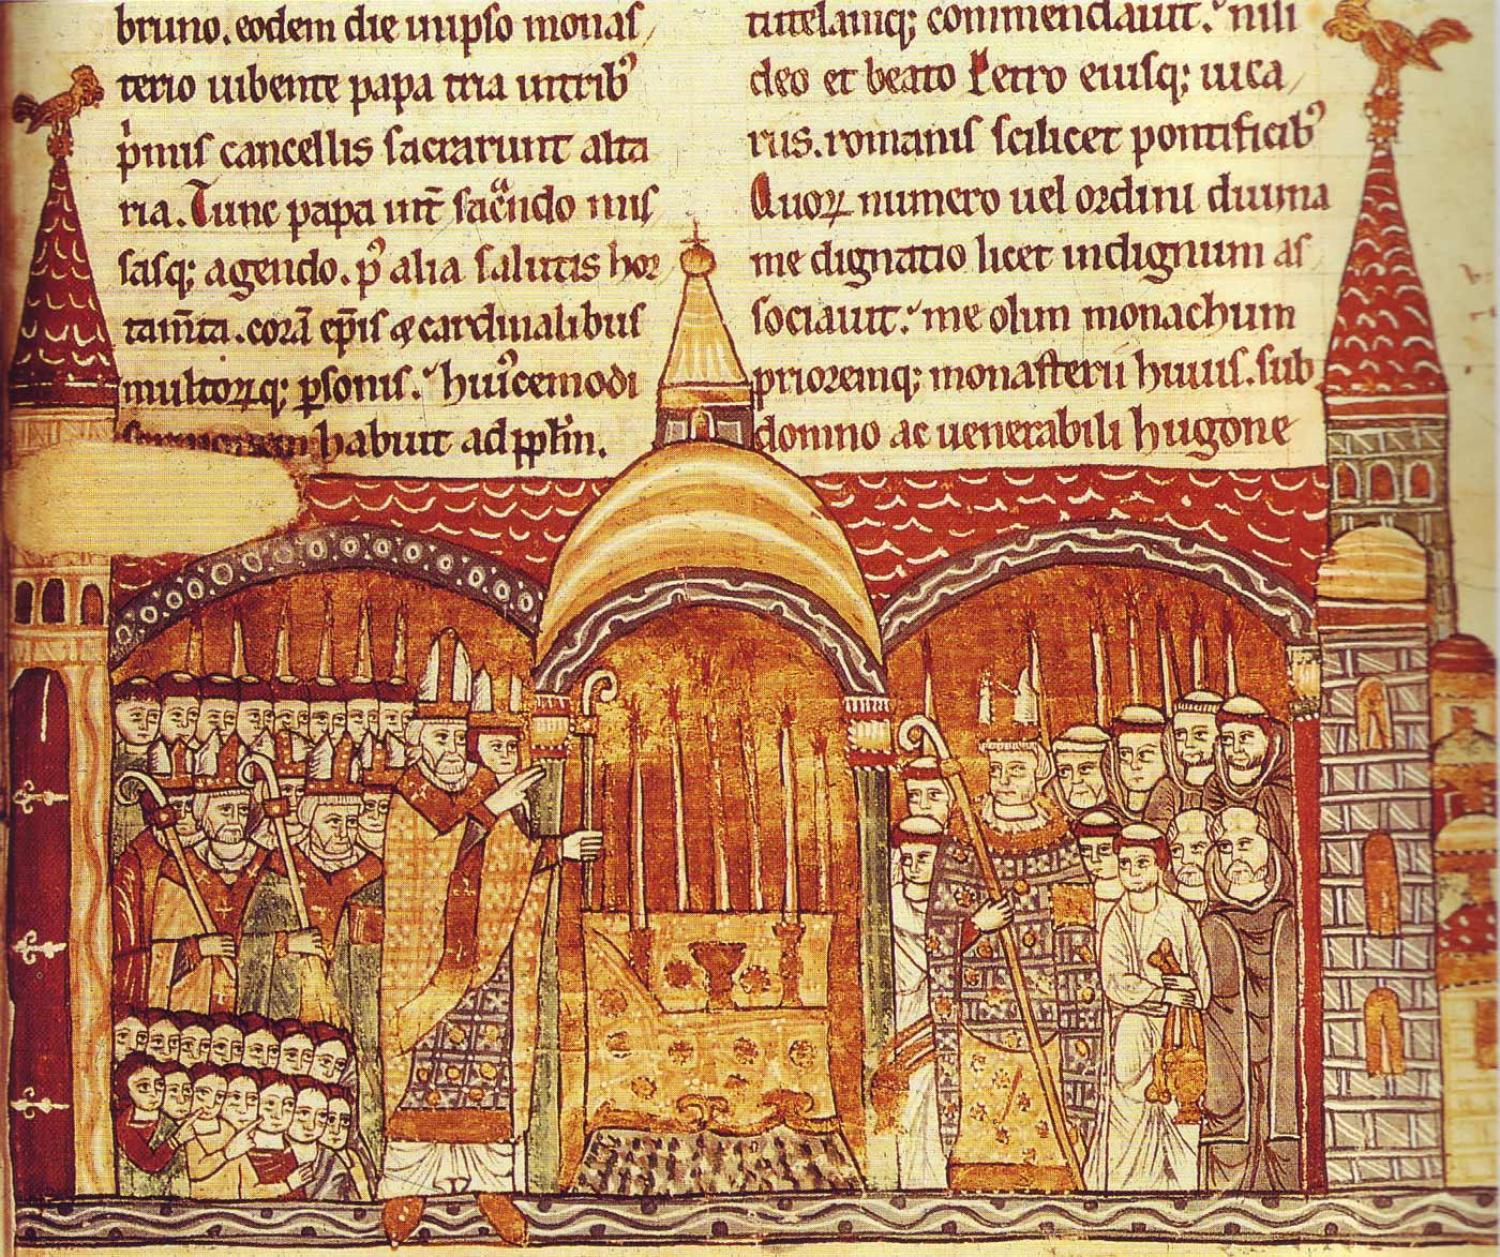 bruno. eodem die inipso monas/
terio iubente papa tria intribꝰ
pͥmis cancellis sacrarunt alta
ria. Tunc papa int̃ sac̃ndo mis
sasq; agendo. pꝰ alia salutis hor
tam̃ta. corã ep̃is ⁊ cardinalibus
multoꝝq; ꝑsonis. huiꝰcemodi
habuit ad pplm̃.
tutelamq; commendauit. nisi
deo et beato Petro eiusq; uica/
riis. romanis scilicet pontificibꝰ
Quoꝝ numero uel ordini diuina
me dignatio licet indignum as/
sociauit. me olim monachum
prioremq; monasterii huius. sub
domno ac uenerabili hugone